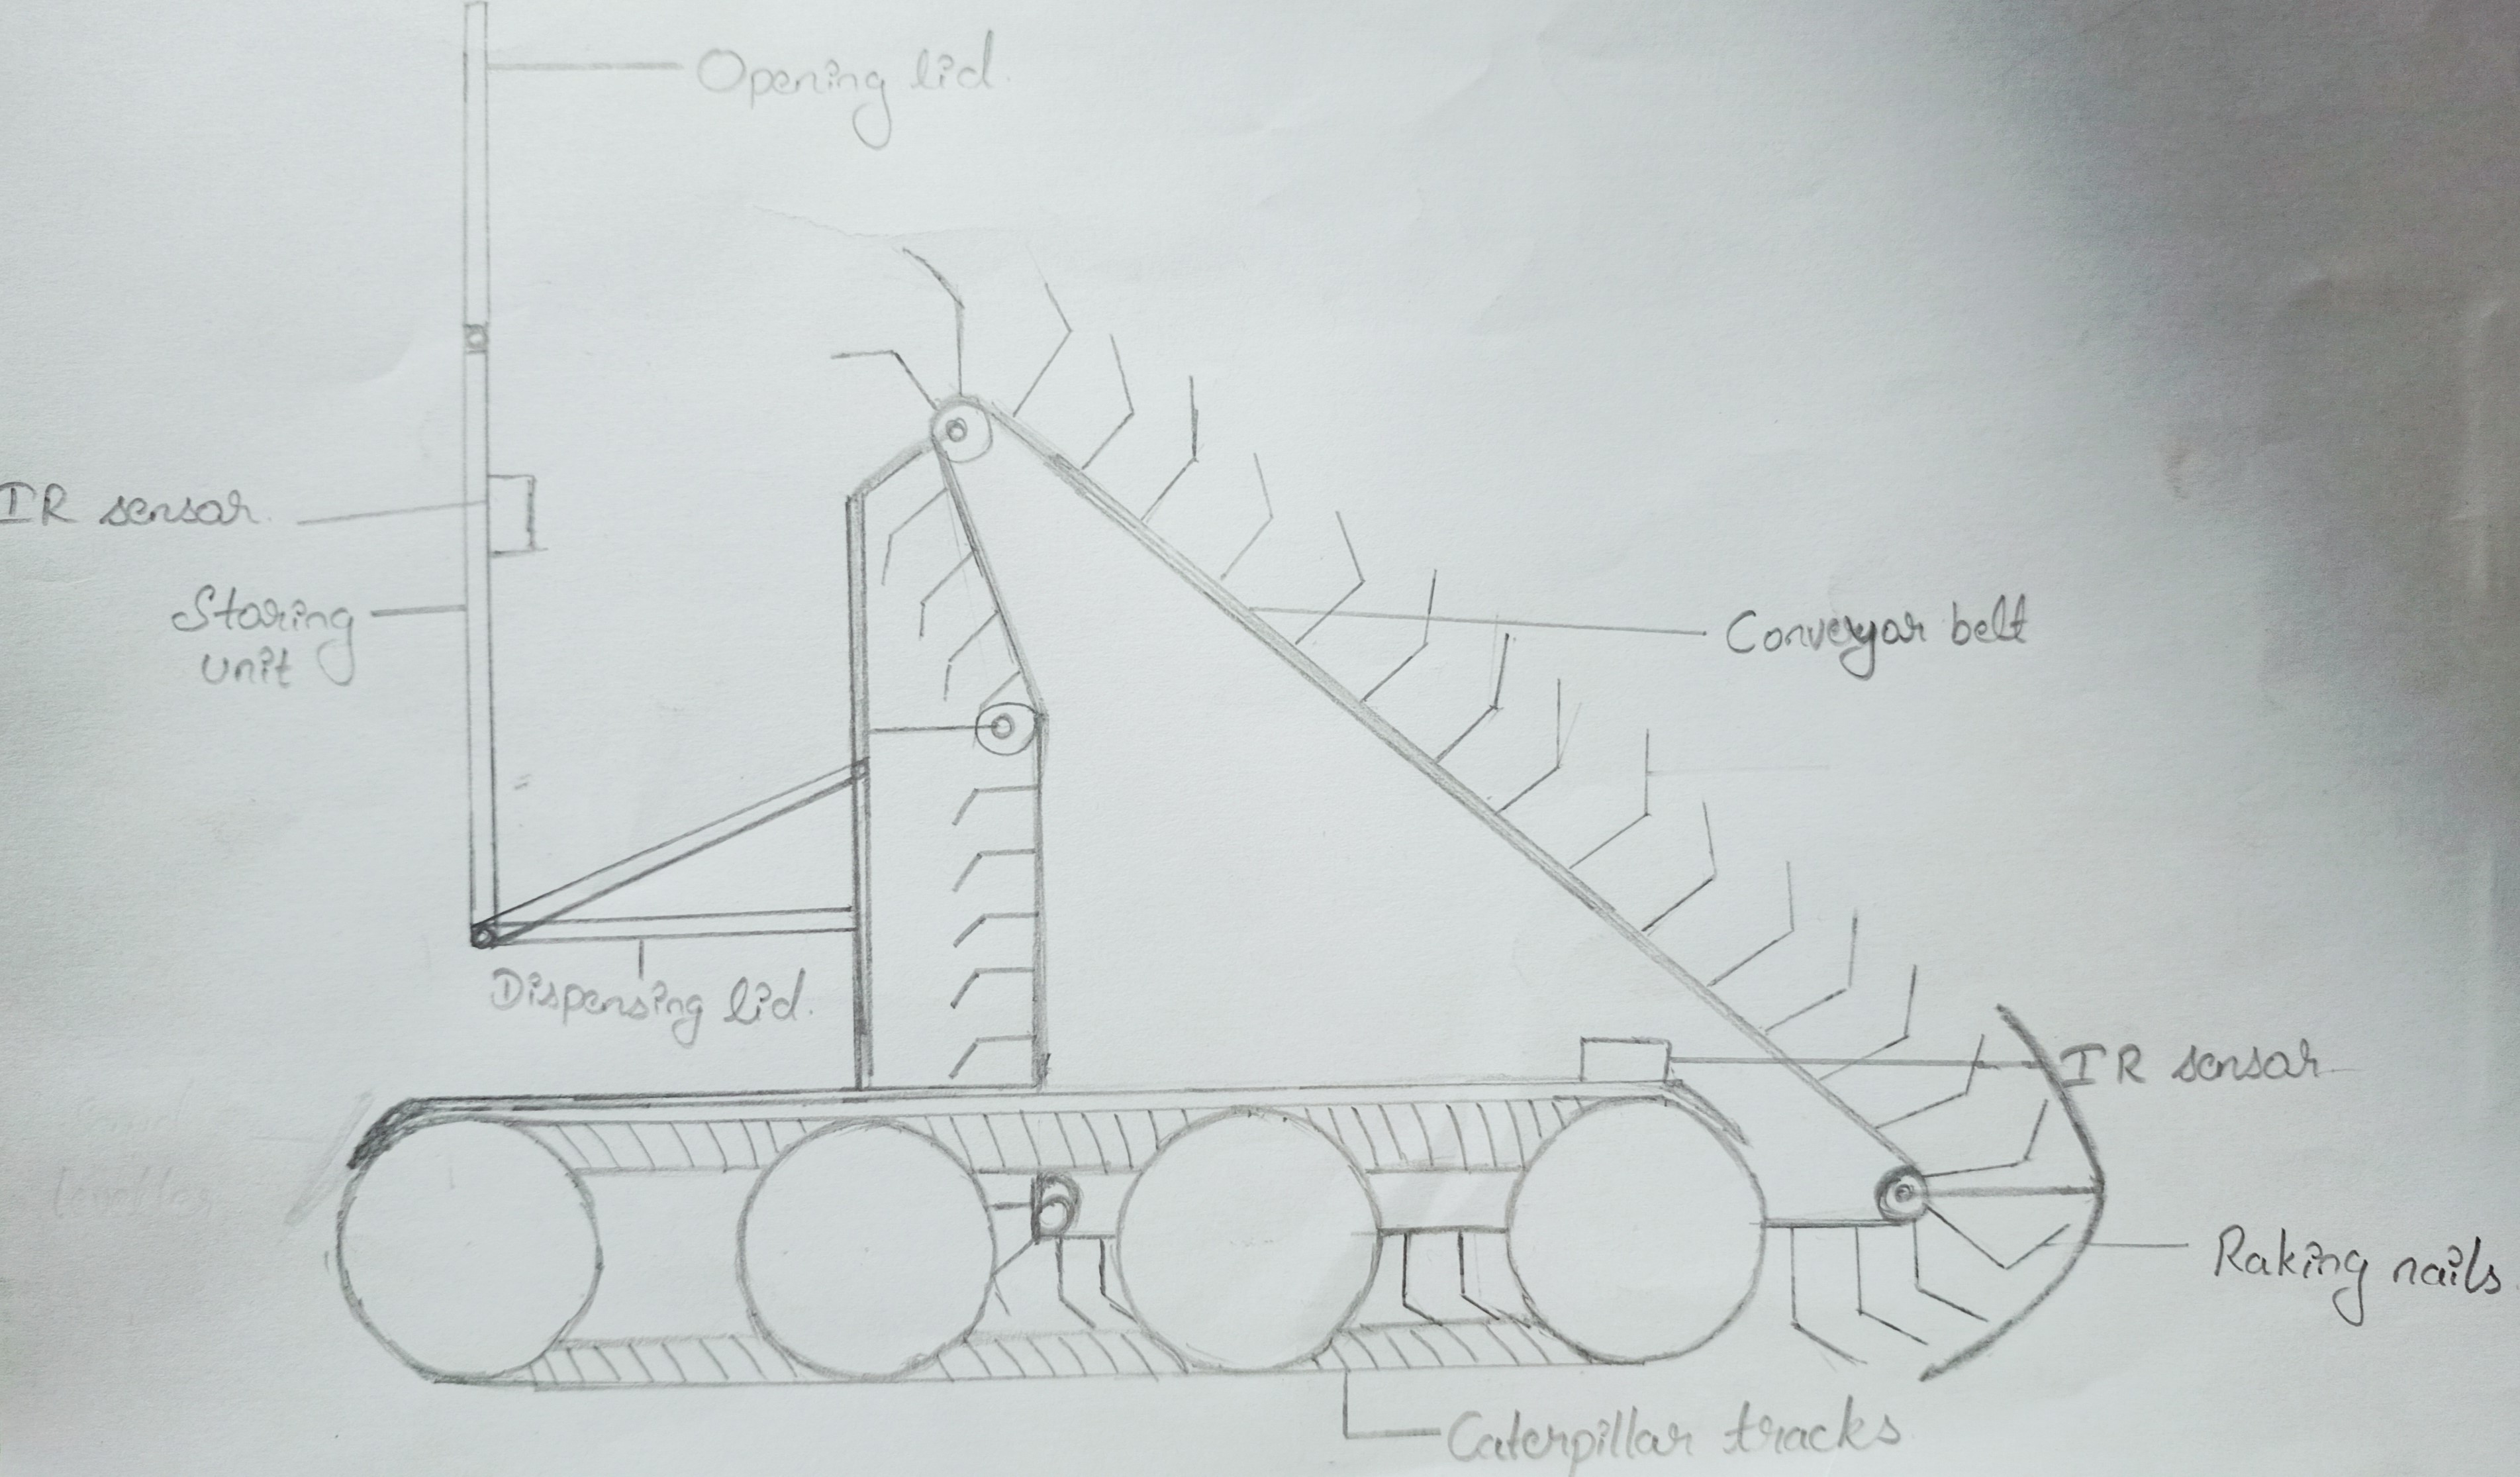 Opening lid.
IR sensor.
Storing
unit
Conveyor belt
Dispensing lid.
IR sensor
Raking nails
Caterpillar tracks